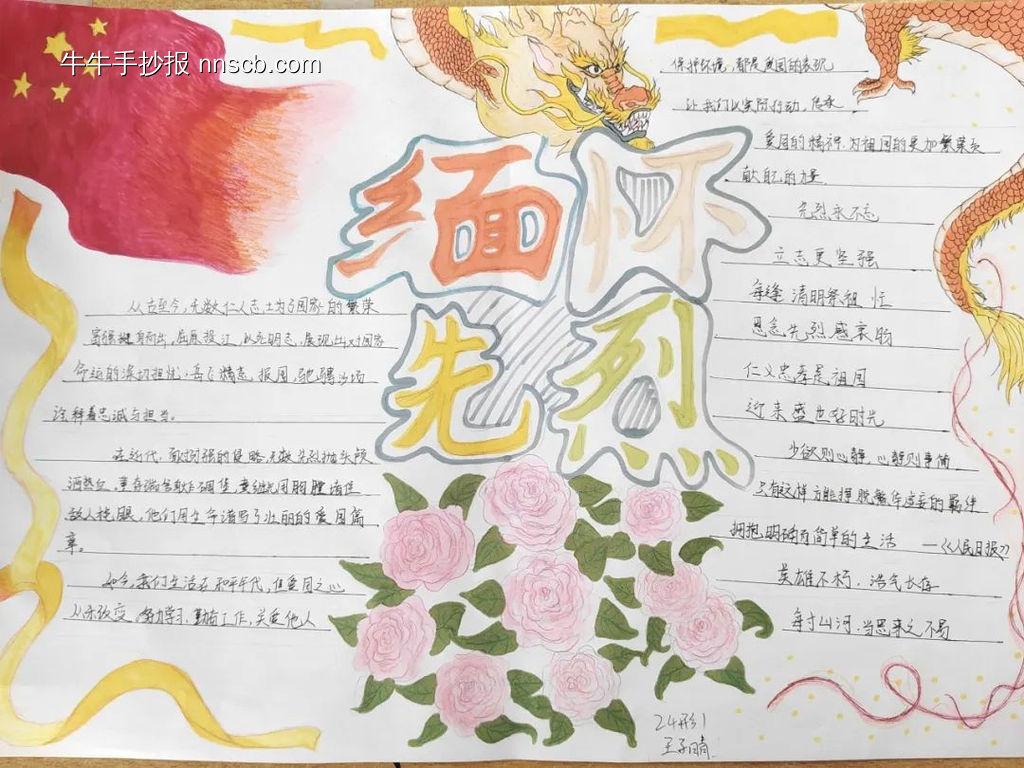 牛牛手抄报 nnscb.com
缅怀
先烈
从古至今,无数仁人志士为了国家的繁荣
富强挺身而出,屈原投江,以死明志,展现出对国家
命运的深切担忧,岳飞精忠报国,驰骋沙场
诠释着忠诚与担当。
在近代,面对列强的侵略,无数先烈抛头颅
洒热血,董存瑞舍身炸碉堡,黄继光用胸膛堵住
敌人枪眼,他们用生命谱写了壮丽的爱国篇
章。
如今,我们生活在和平年代,但爱国之心
从未改变,努力学习,勤奋工作,关爱他人
保护环境,都是爱国的表现
让我们以实际行动,传承
爱国的精神,为祖国的更加繁荣贡
献自己的力量
先烈永不忘
立志更坚强
每逢清明祭祖忙
思念先烈感哀
仁义忠孝是祖国
迎来盛世好时光
少欲则心静,心静则事简
只有这样方能摆脱繁华虚妄的羁绊
拥抱明确而简单的生活 —《人民日报》
英雄不朽,浩气长存
每寸山河,当思来之不易
24形1
王子晴